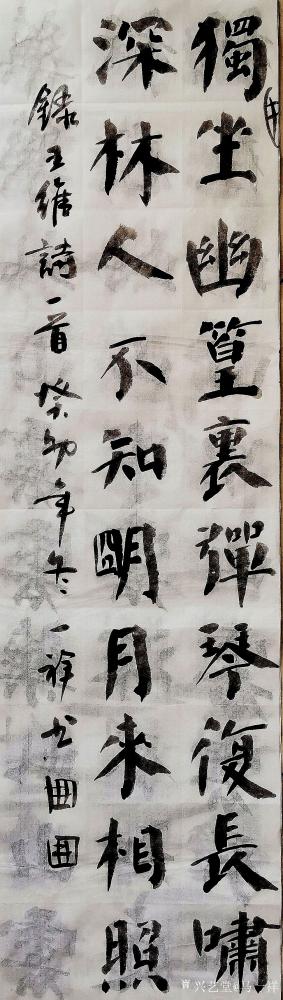 獨坐幽篁裏彈琴復長嘯
深林人不知明月來相照
錄王維詩一首癸卯年冬一祥书
兴艺堂@马一祥